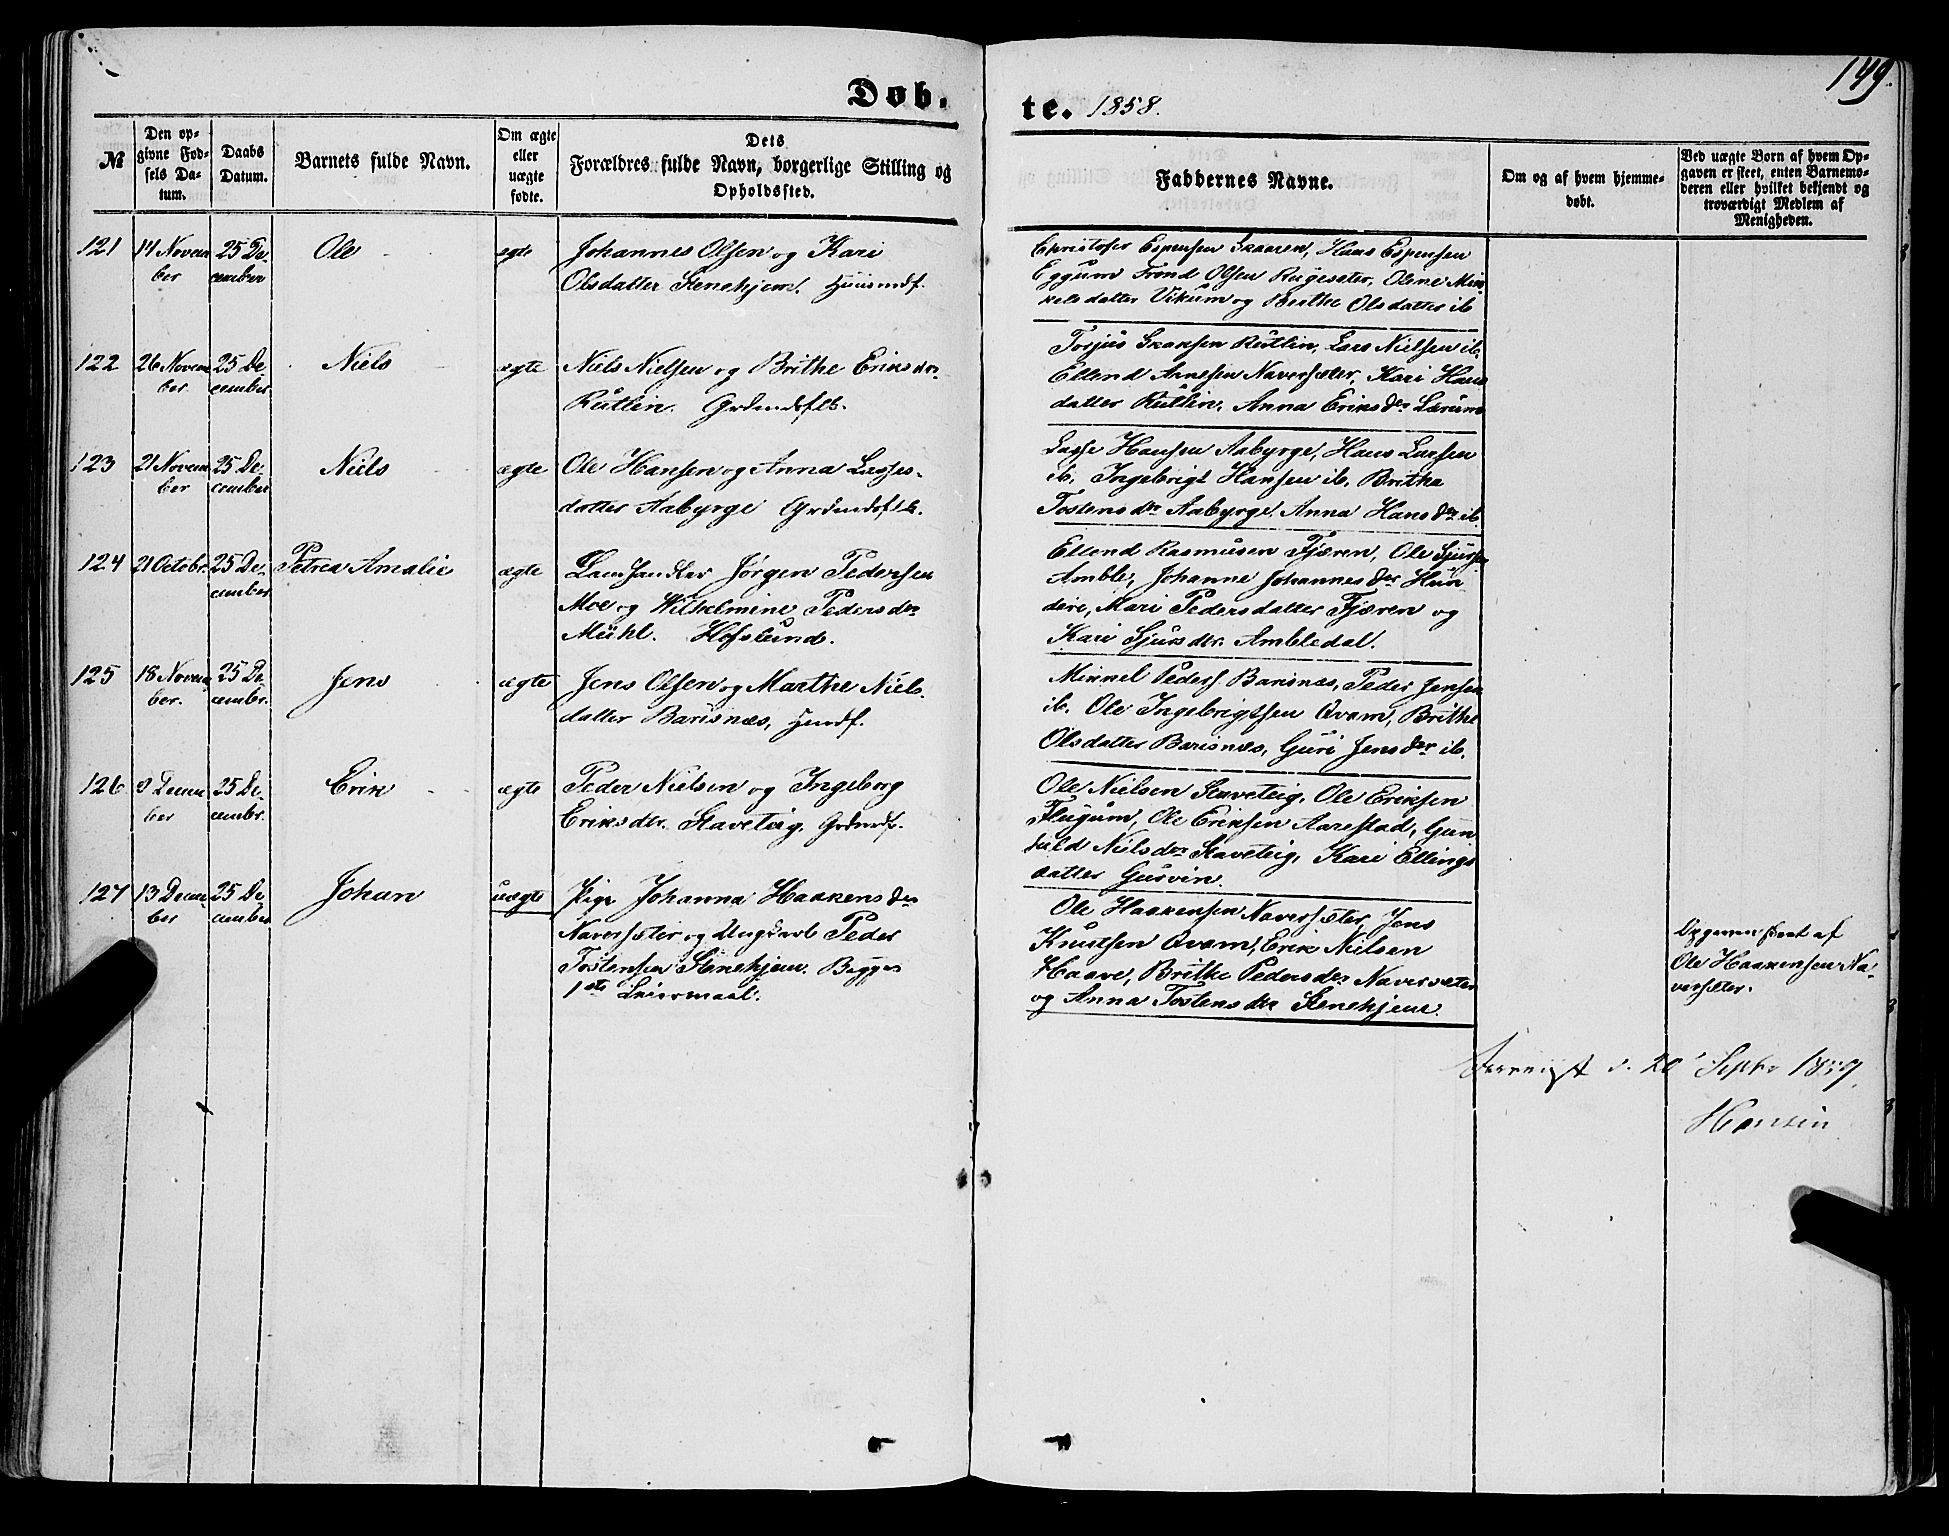 149.
Døb. te. 1858.
№
Den op-
givne Fød-
sels Da-
tum.
Daabs
Datum.
Barnets fulde Navn.
Om ægte
eller
uægte
fødte.
Dets
Forældres fulde Navn, borgerlige Stilling og
Opholdssted.
Faddernes Navne.
Om og af hvem hjemme-
døbt.
Ved uægte Børn af hvem Op-
gaven er skeet, enten Barnemo-
deren eller hvilket bekjendt og
troværdigt Medlem af
Menigheden.
121
14 Novem
ber
25 De-
cember
Ole
ægte
Johannes Olsen og Kari
Olsdatter Stenehjem. Huusmdf.
Christofer Espensen Skaaren, Hans Espensen
Eggum Trond Olsen Rugesæter, Olene Mik
kelsdatter Vikum og Brithe Olsdatter ib
122
26 Novem
ber
25 De
cember
Niels
ægte
Niels Nielsen og Brithe Eriksdr
Rutlin. Grdmdsflk.
Torjus Rutlin, Lars Nielsen ib.
Ellend Arnesen Naversæter, Kari Hans
datter Rutlin, Anna Eriksder Lærum
123
21 Novem
ber
25 De-
cember
Niels
ægte
Ole Hansen og Anna Lasses-
datter Aabyrge Grdmdsflk.
Lasse Hansen Aabyrge, Hans Larsen
ib. Ingebrigt Hansen ib. Britha
Tostensder Aabyrge. Anna Hansder ib.
124
21 Octobr.
25 De-
cember
Petrea Amalie
ægte
Landhandler Jørgen Pedersen
Moe og Wilhelmine Pedersder
Mühl. Hofslund.
Ellend Rasmusen Fjæren, Ole Sjursen
Amble, Johanne Johannesder Hun
dere, Mari Pedersdatter Fjæren og
Kari Sjursder. Ambledal.
125
18 Novem
ber.
25 De
cembr.
Jens
ægte
Jens Olsen og Marthe Niels
datter Barsnæs, Hmdf.
Mikkel Peders. Barsnæs, Peder Jensen
ib. Ole Ingebrigtsen Qvam, Brithe
Olsdatter Barsnæs, Guri Jensder ib.
126
Decem
ber
25 De-
cembr.
Erik
ægte
Peder Nielsen og Ingeborg
Eriksder. Slaveteig. Grdmdf.
Ole Nielsen Slaveteig, Ole Eriksen
Flugum, Ole Eriksen Aarestad, Gun
hild Nielsder Slaveteig, Kari Ellings
datter Gurvin.
127
13 Decem
ber
25 De
cember
Johan
uægte
Pige Johanna Haakensder
Naversæter og Ungkarl Peder
Tostensen Stenehjem. Begges
1ste Leiermaal.
Ole Haakensen Naversæter, Jens
Knutsen Qvam, Erik Nielsen
Haave, Brithe Pedersder Naversæter
og Anna Tostensder Stenehjem.
Opgaven skeet af
Ole Haakensen Na-
versæter.
d. 20 Septbr 1859.